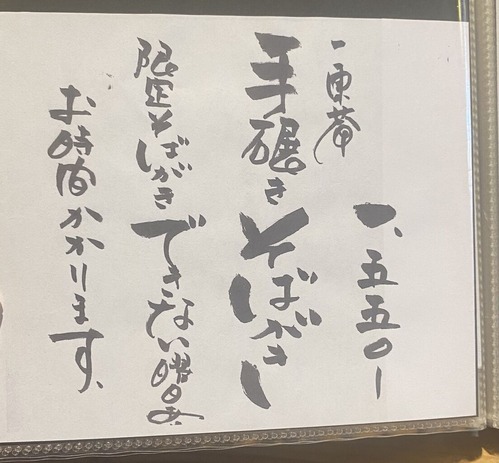 手碾きそばがき
一、五五〇ー
限定そばがきできない曜日あ
お時間かかります、